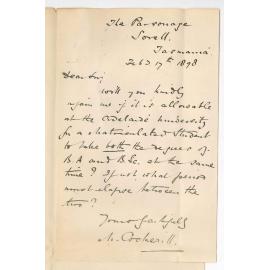 The Parsonage
Sorell.
Tasmania
Feb 17th 1898
Dear Sir,
Will you kindly
again us if it is allowable
at the Adelaide University
for a Matriculated Student
to take both the degrees of
B.A and B.Sc. at the same
time? If not what period
must elapse between the
two?
Yours faithfully